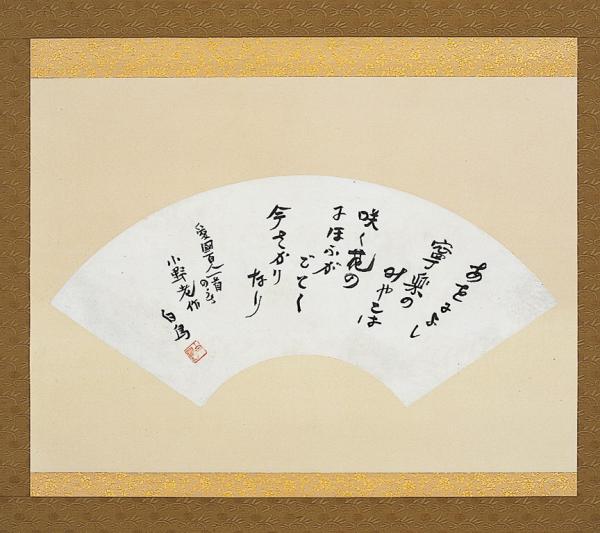 あをによし
寧楽の
みやこは
咲く花の
にほふが
ごとく
今さかり
なり
愛國百人一首
のうち
小野老作
白鳥